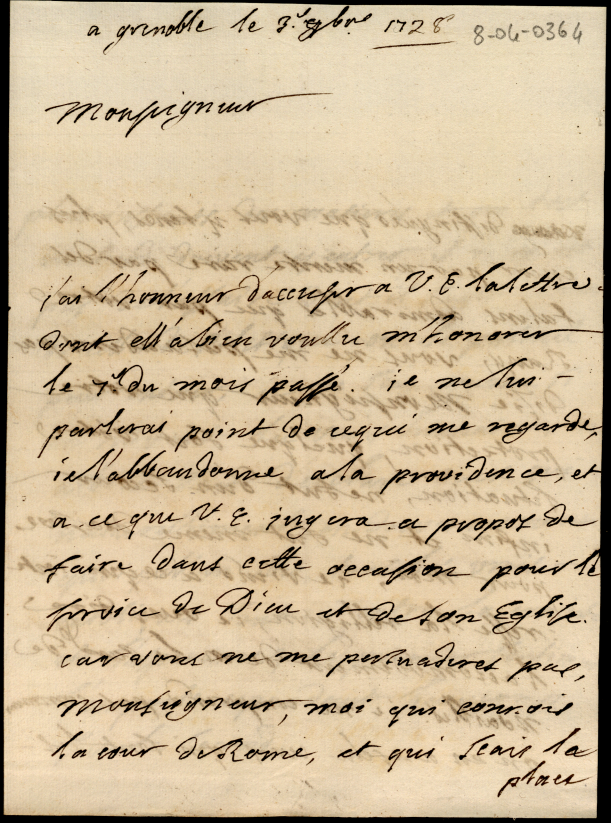 a grenoble le 3.e 9bre 1728
8-04-0364
Monseigneur
j'ai l'honneur d'accuser a V. E. la lettre
dont ell'a bien voullu m'honorer
le 7.e du mois passé. je ne lui
parlerai point de cequi me regarde,
ie l'abbandonne a la providence, et
a ce que V. E. jugera a propos de
faire dans cette occasion pour le
service de Dieu et de son Eglise.
car vous ne me persuaderes pas,
Monseigneur, moi qui connois
la cour de Rome, et qui scais la
place